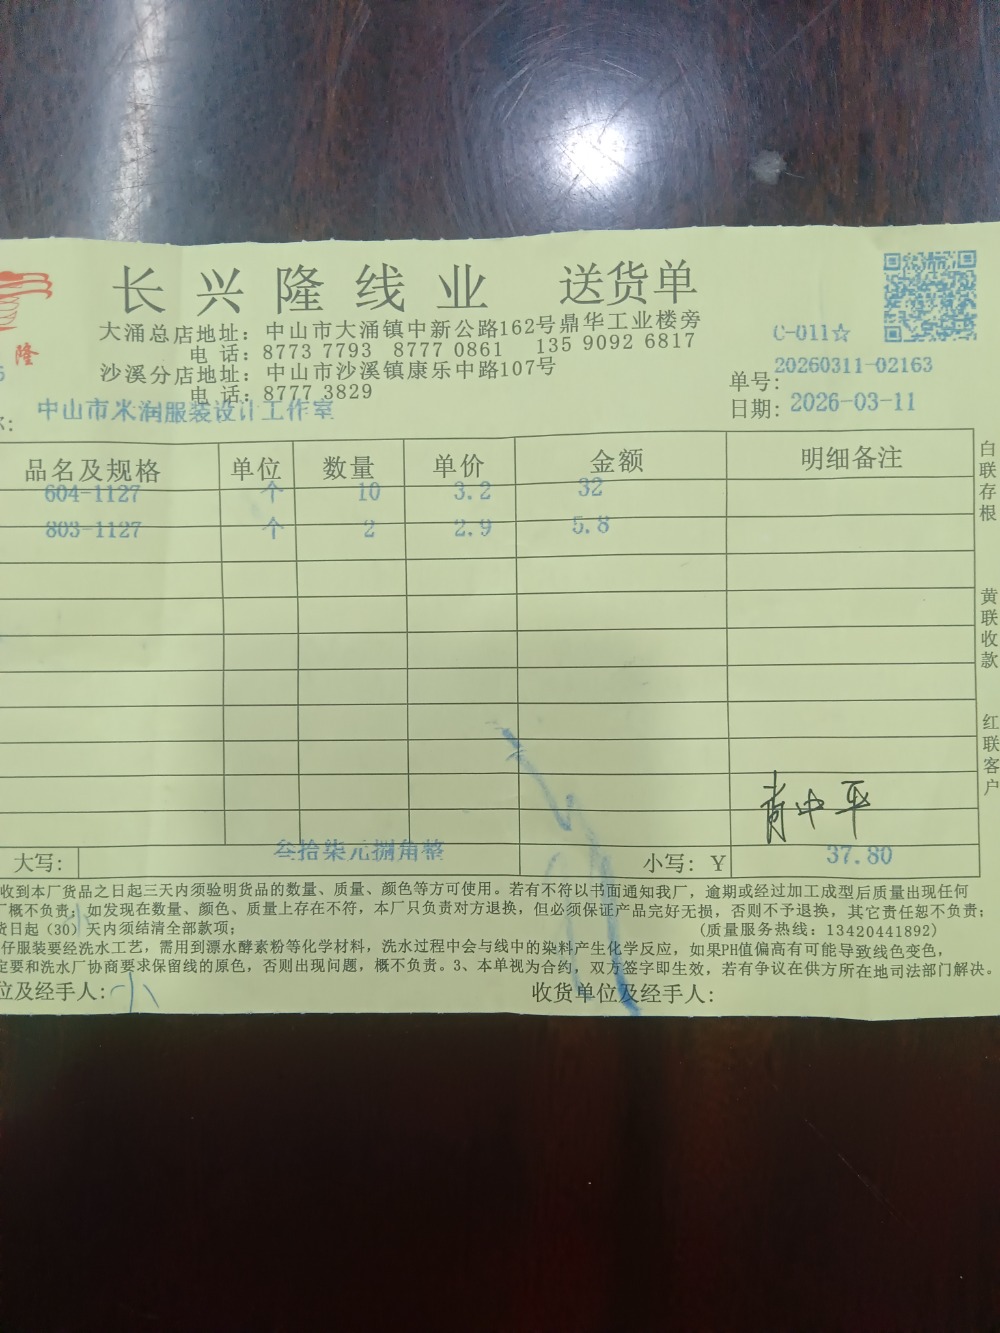 长兴隆线业 送货单
隆
大涌总店地址：中山市大涌镇中新公路162号鼎华工业楼旁
电 话：8773 7793 8777 0861 135 9092 6817
C-011☆
沙溪分店地址：中山市沙溪镇康乐中路107号
电 话：8777 3829
单号：20260311-02163
日期：2026-03-11
中山市米润服装设计工作室
品名及规格 单位 数量 单价 金额 明细备注
604-1127 个 10 3.2 32
803-1127 个 2 2.9 5.8
白联存根
黄联收款
红联客户
肖中平
大写： 叁拾柒元捌角整 小写：Y 37.80
收到本厂货品之日起三天内须验明货品的数量、质量、颜色等方可使用。若有不符以书面通知我厂，逾期或经过加工成型后质量出现任何
厂概不负责；如发现在数量、颜色、质量上存在不符，本厂只负责对方退换，但必须保证产品完好无损，否则不予退换，其它责任恕不负责；
货日起（30）天内须结清全部款项； （质量服务热线：13420441892）
仔服装要经洗水工艺，需用到漂水酵素粉等化学材料，洗水过程中会与线中的染料产生化学反应，如果PH值偏高有可能导致线色变色，
定要和洗水厂协商要求保留线的原色，否则出现问题，概不负责。3、本单视为合约，双方签字即生效，若有争议在供方所在地司法部门解决。
位及经手人： 收货单位及经手人：